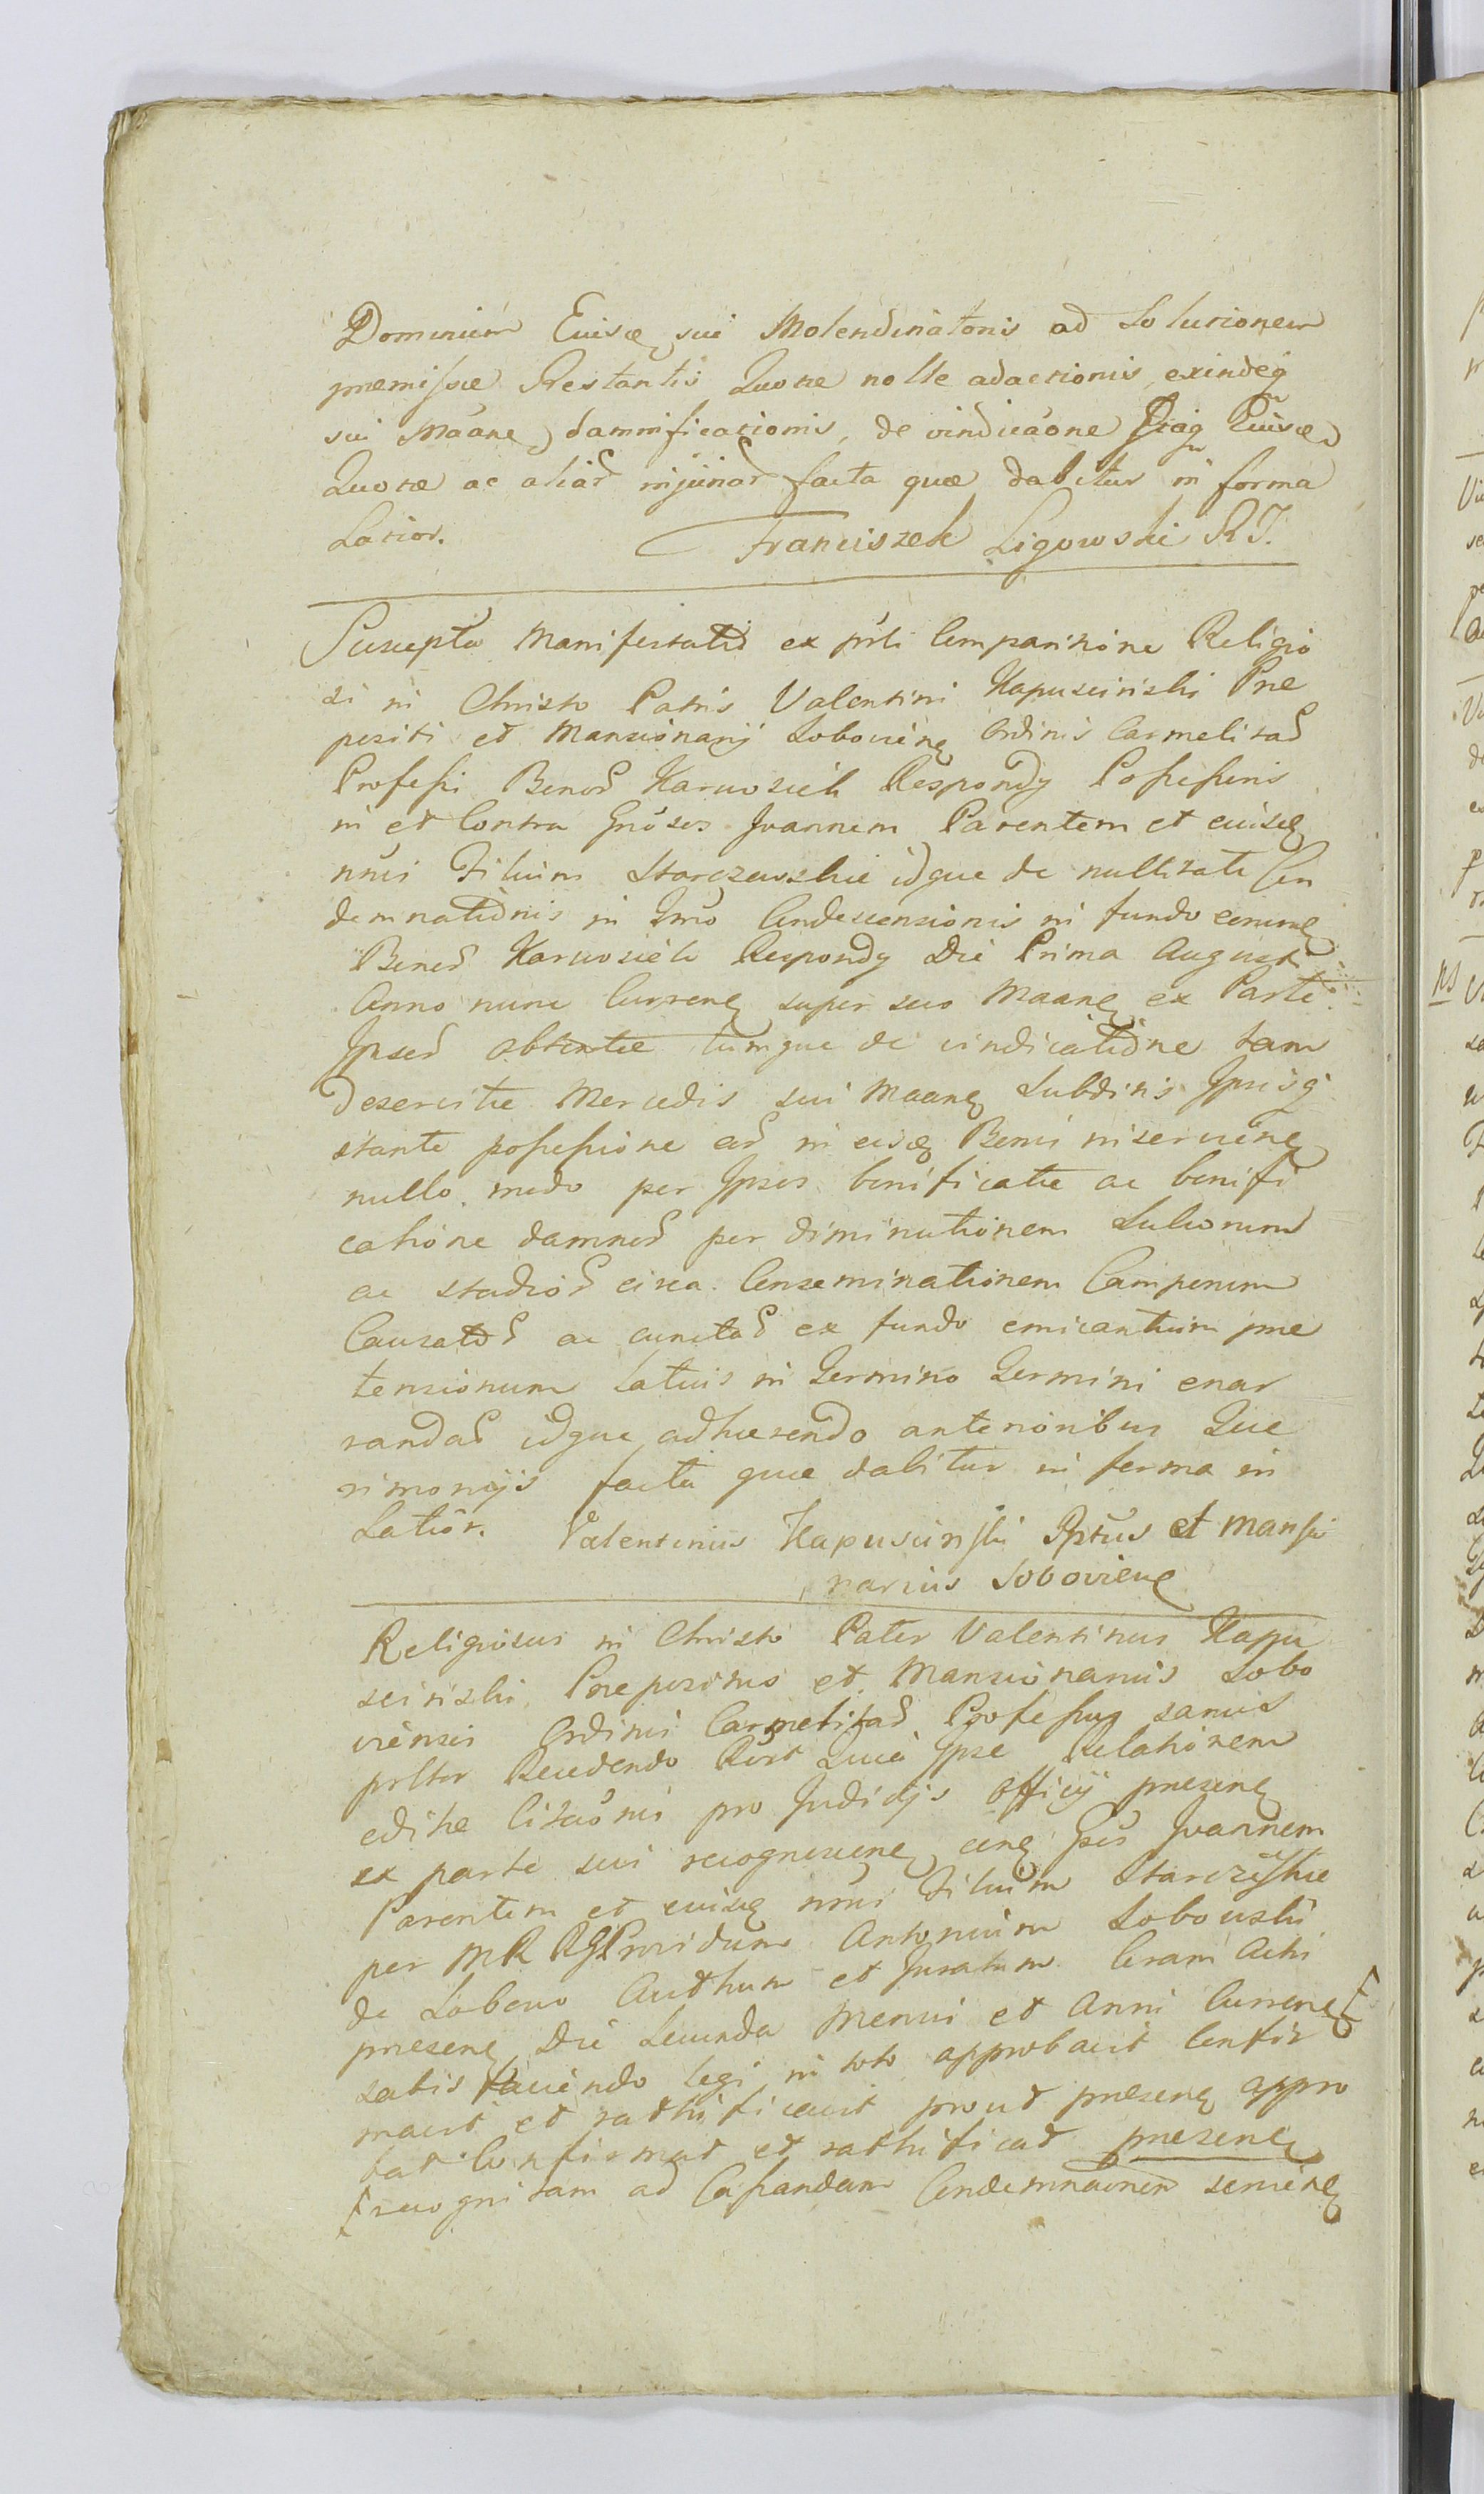 Dominium Eius sui Molendinatoris ad Solutionem
præmissæ Restantis Quotæ nolle adactionis, exindeq
sui Maane damnificationis, de vindicaone Eius
Quotæ ac aliar injuriar facta quæ dabitur in forma
Latior. Franciszek Ligowski RT.
Suscepta Manifestatio ex prli Comparitione Religio
si in Christo Patris Valentini Kapuscinski Præ
positi et Mansionarij Soboviene Ordinis Carmelitar
Professi Bonor Karwosieki Respondy Possessoris
in et Contra Gnosos Joannem Parentem et eius
nnus Filium Starczewskie idque de nullitate Con
demnationis in Tmo Condescensionis in fundo eorum
Bonor Karwosieki Respondy Die Prima Augusti
Anno nunc Curren super suo Maane ex Parte
Ipsor obtentæ tumque de vindicatione tam
deservitæ Mercedis sui Maane Subditis Ipsis
stante possessione ear in eis Bonis inservien
nullo modo per Ipsos bonificatæ ac bonifi
catione damnor per diminutionem Sulcorum
ac stadior circa Conseminationem Camporum
Causator ac cunctar ex fundo emicantium præ
tensionum latius in Termino Termini enar
randar idque adhærendo anterioribus Que
rimonijs facta quæ dabitur in forma in
Latior. Valentinus Kapuscinski Pptus et Mansio
narius Sobovien
Religiosus in Christo Pater Valentinus Kapu
scinski Præpositus et Mansionarius Sobo
viensis Ordinis Carmelitar Professus sanus
prltor Recedendo Ipse Relationem
editæ Citaonis pro Judicijs Officij præsen
ex parte sui recognoscen Joannem
Parentem et eius nnus Filium Starczewskie
per MR Providum Antonium Sobowski
de Sobowo Aucthum et Juratum Coram Actis
præsen Die Secunda Mensis et Anni Curren
satis faciendo legi in toto approbavit Confir
mavit et rathificavit prout præsen appro
bat Confirmat et rathificat præsen
recognitam ad Cassandam Condemnaonem servien